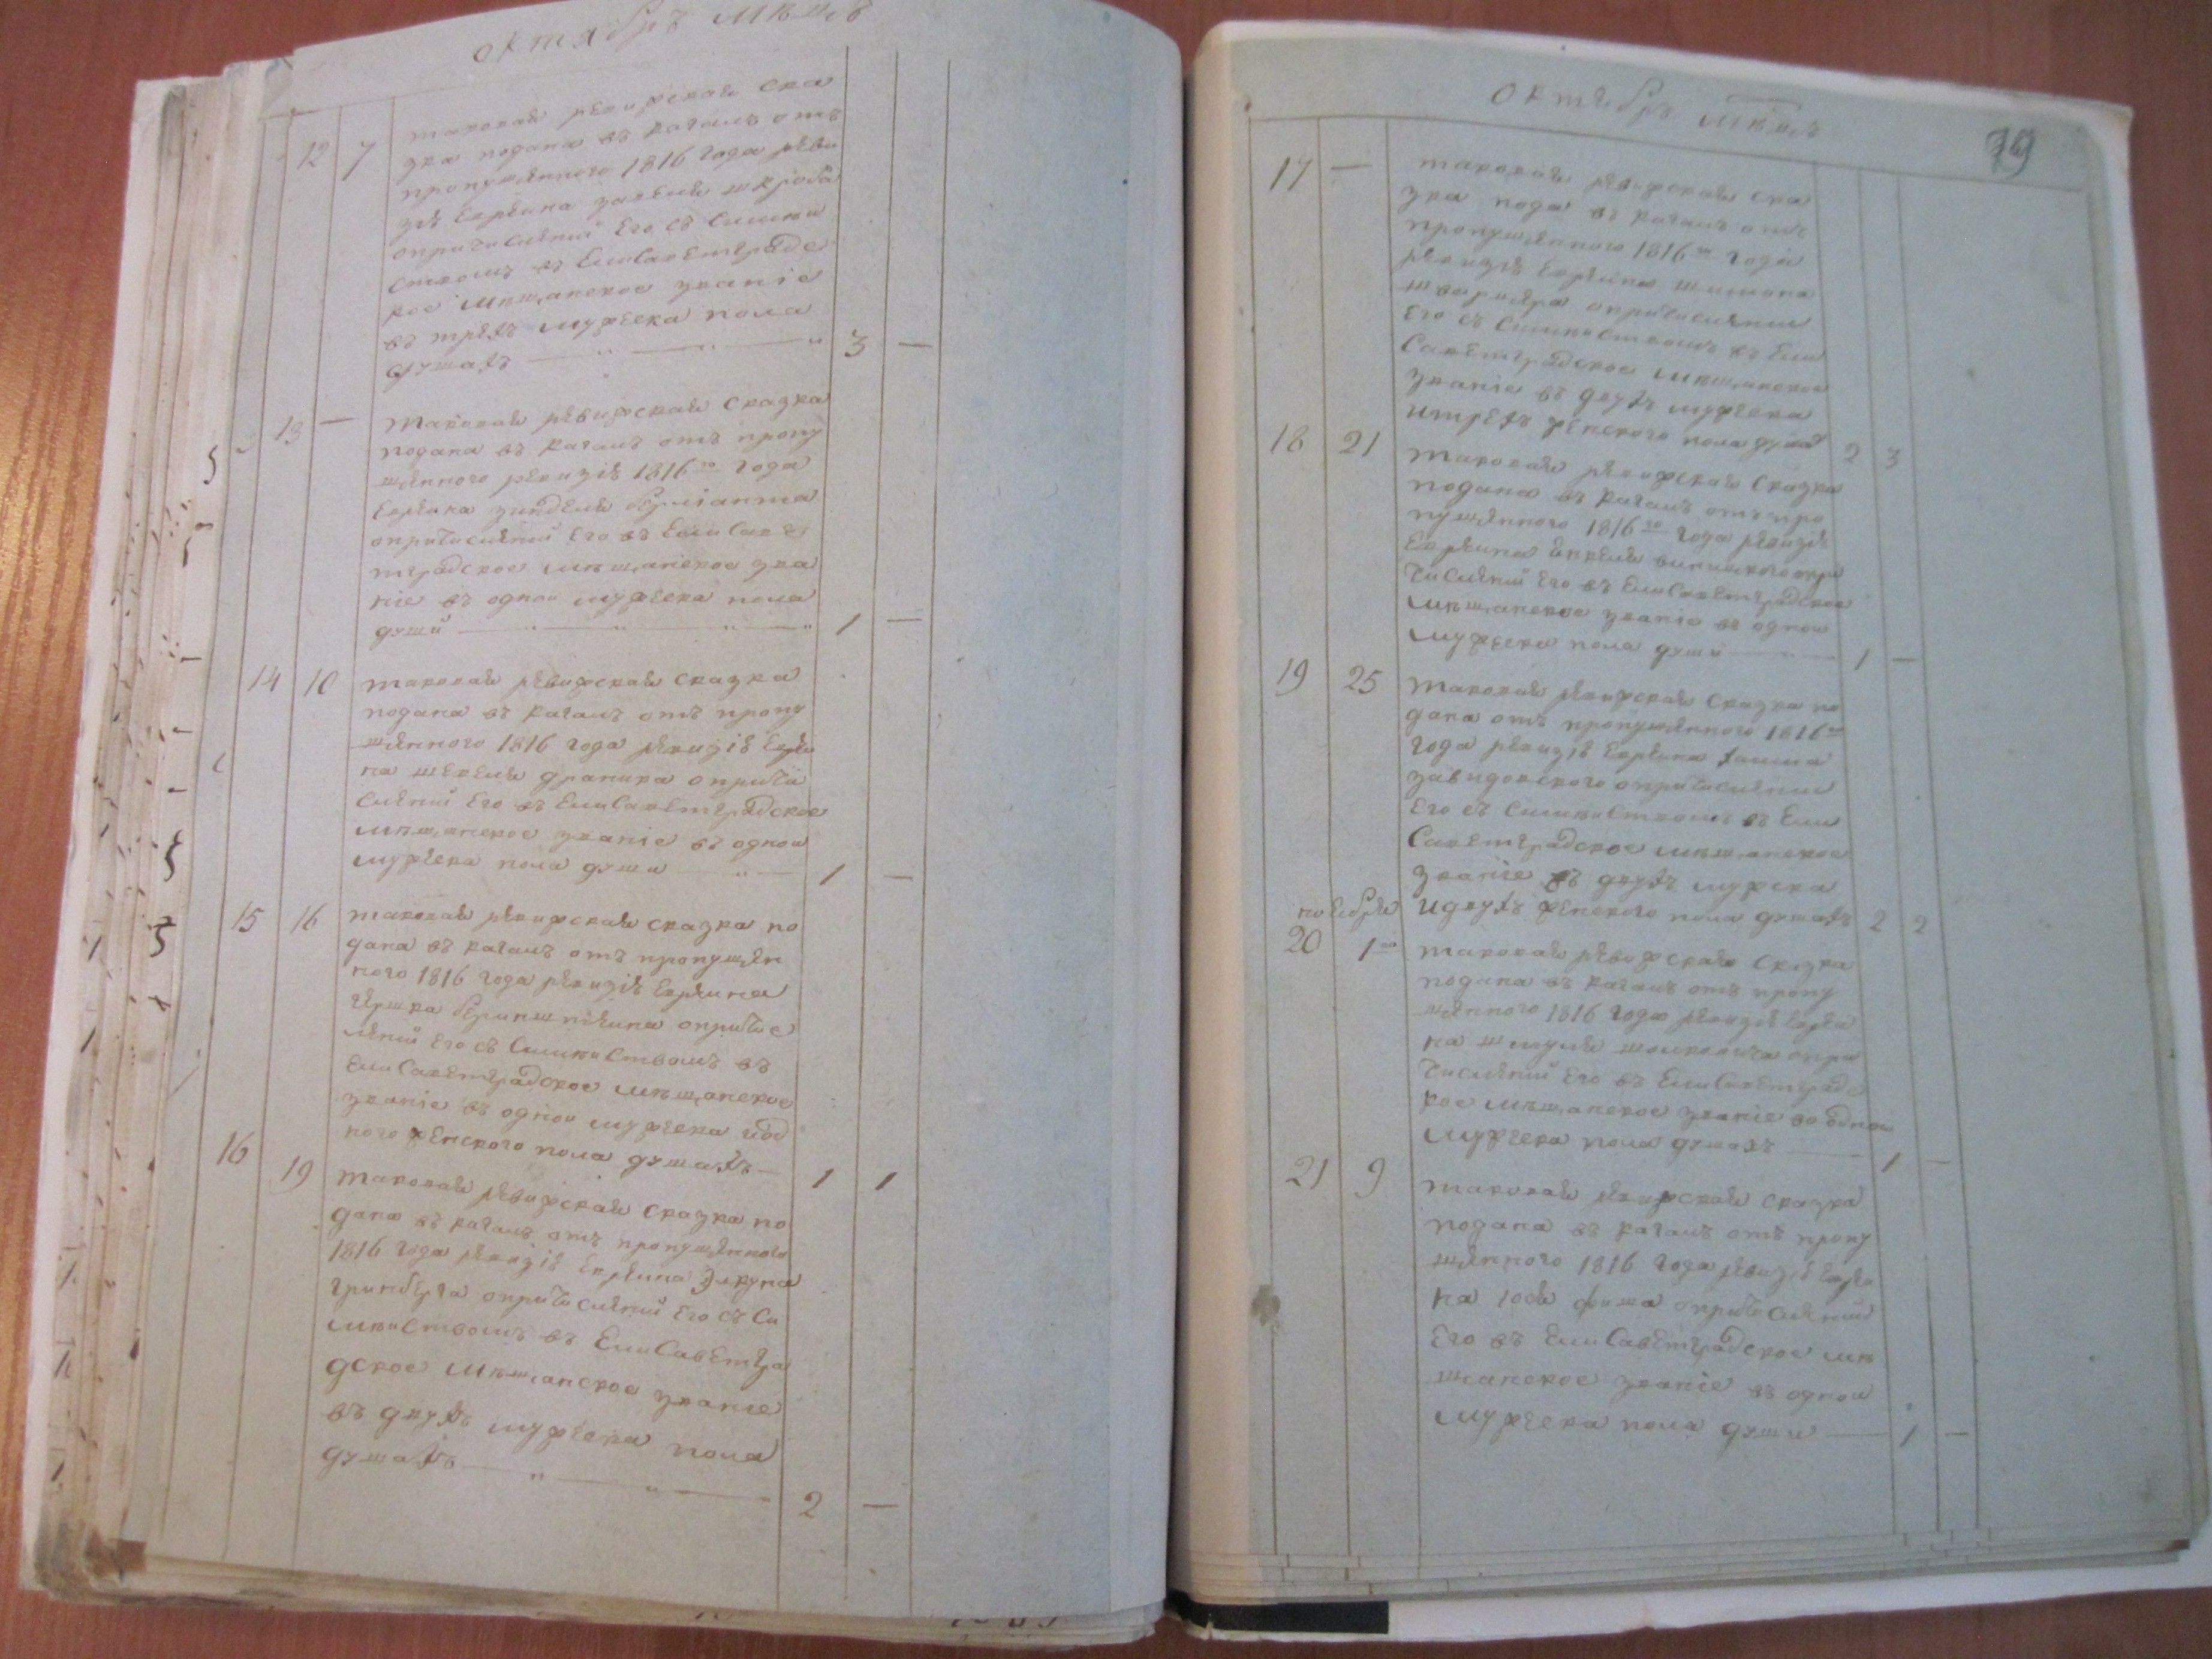 октябрь мѣсць
12 7 таковая ревижская ска
зка подана въ кагалъ отъ
пропущенного 1816 года реви
зіѣ Еврейна
опричисленій Его съ Симѣи
ствомъ въ Елисаветградс
кое мѣщанское званіе
въ трехъ мужеска пола
душахъ — „ — „ — „ 3 —
13 — таковая ревижская сказка
подана въ кагалъ отъ пропу
щенного ревизіѣ 1816го года
Еврейна зайделя
опричисленій Его въ Елисаве
тградское мѣщанское зва
ніе въ одной мужеска пола
души — „ — „ — „ — „ 1 —
14 10 таковая ревижская сказка
подана въ кагалъ отъ пропу
щенного 1816 года ревизіѣ Еврей
на шевеля драпира опричи
сленій Его въ Елисаветградское
мѣщанское званіе въ одной
мужеска пола души — „ — 1 —
15 16 таковая ревижская сказка по
дана въ кагалъ отъ пропущен
ного 1816 года ревизіѣ Еврейна
гершка опричис
леній Его съ Симѣиствомъ въ
Елисаветградское мѣщанское
званіе въ одной мужеска иод
ного женского пола душахъ — 1 1
16 19 таковая ревижская сказка по
дана въ кагалъ отъ пропущенного
1816 года ревизіѣ Еврейна Элкуна
гринберга опричисленій Его съ Си
мѣиствомъ въ Елисаветгра
дское мѣщанское званіе
въ двухъ мужеска пола
душахъ — „ — „ — 2 —
октябрь мѣсць
79
17 — таковая ревижская ска
зка пода въ кагалъ отъ
пропущенного 1816го года
ревизіѣ Еврейна шимона
опричисленій
Его съ Симѣиствомъ въ Ели
Саветградское мѣщанское
званіе въ двухъ мужеска
итрехъ женского пола душа 2 3
18 21 таковая ревижская сказка
подана въ кагалъ отъ про
пущенного 1816го года ревизіѣ
Еврейна янкеля опри
численій Его въ Елисаветградское
мѣщанское званіе въ одной
мужеска пола души — „ — 1 —
19 25 таковая ревижская сказка по
дана отъ пропущенного 1816го
года ревизіѣ Еврейна хаима
завидовского опричисленій
Его съ Симѣиствомъ въ Ели
Саветградское мѣщанское
званіе въ двухъ мужска
идвухъ женского пола душахъ 2 2
ноября
20 1го таковая ревижская сказка
подана въ кагалъ отъ пропу
щенного 1816 года ревизіѣ Еврей
на шмуля опри
численій Его въ Елисаветградс
кое мѣщанское званіе во одной
мужеска пола душахъ — 1 —
21 9 таковая ревижская сказка
подана въ кагалъ отъ пропу
щенного 1816 года ревизіѣ Еврей
на фиша опричисленій
Его въ Елисаветградское мѣ
щанское званіе въ одной
мужеска пола души — 1 —